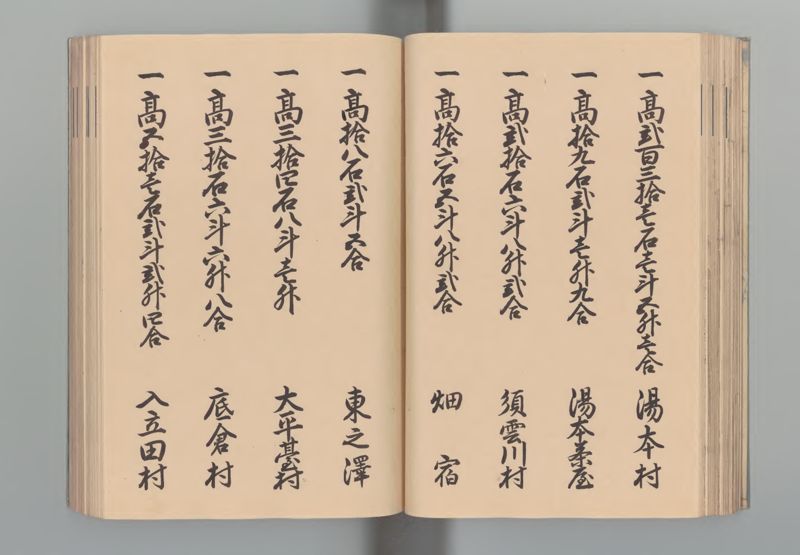 一高弐百三拾壱石壱斗五升壱合 湯本村
一高拾九石弐斗壱升九合 湯本茶屋
一高弐拾石六斗八升弐合 須雲川村
一高拾六石五斗八升弐合 畑宿
一高拾八石弐斗五合 東之澤
一高三拾四石八斗壱升 大平臺村
一高三拾石六斗六升八合 底倉村
一高五拾壱石弐斗弐升四合 入立田村